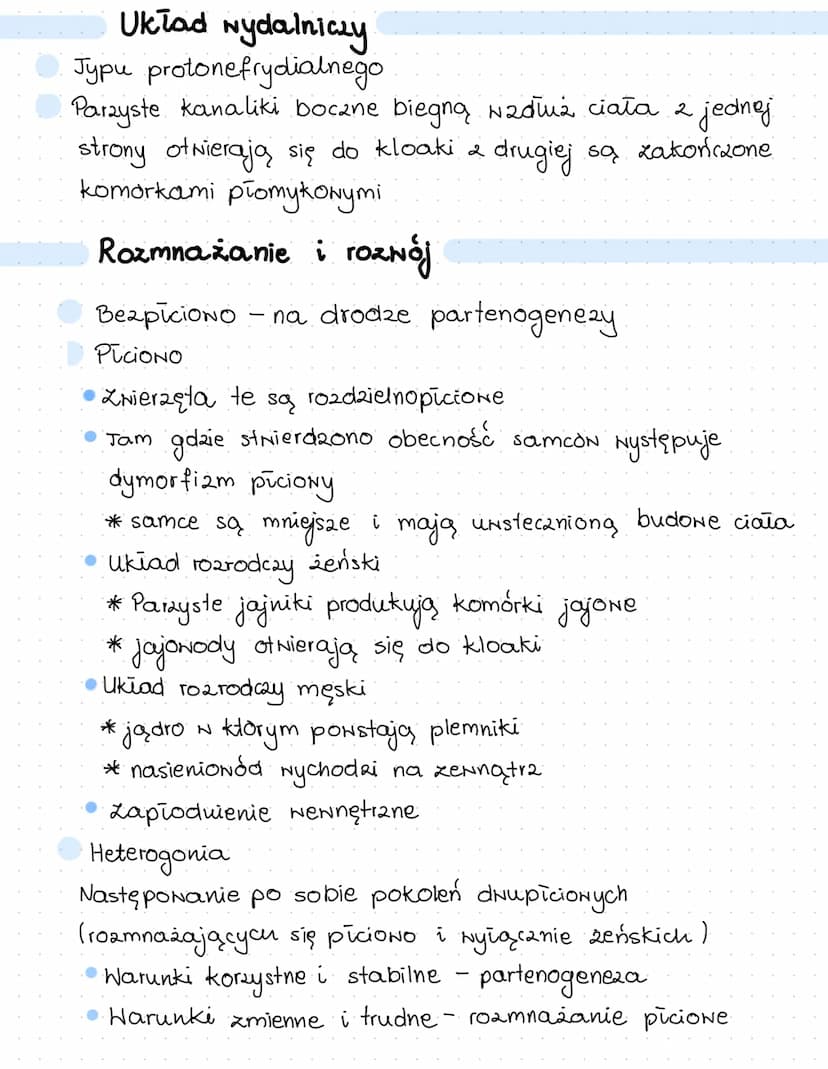 Układ wydalniczy
Typu protonefrydialnego
Parzyste kanaliki boczne biegną wzdłuż ciała z jednej
strony otwierają się do kloaki z drugiej są zakończone
komórkami płomykowymi
Rozmnażanie i rozwój
Bezpłciowo - na drodze partenogenezy
Płciowo
• Zwierzęta te są rozdzielnopłciowe
• Tam gdzie stwierdzono obecność samców występuje
dymorfizm płciowy
* samce są mniejsze i mają uwstecznioną budowe ciała
• Układ rozrodczy żeński
* Parzyste jajniki produkują komórki jajowe
* jajowody otwierają się do kloaki
• Układ rozrodczy męski
* jądro w którym powstają plemniki
* nasieniowód wychodzi na zewnątrz
• Zapłodnienie wewnętrzne
Heterogonia
Następowanie po sobie pokoleń dwupłciowych
(rozmnażających się płciowo i wyłącznie żeńskich)
• Warunki korzystne i stabilne - partenogeneza
• Warunki zmienne i trudne - rozmnażanie płciowe